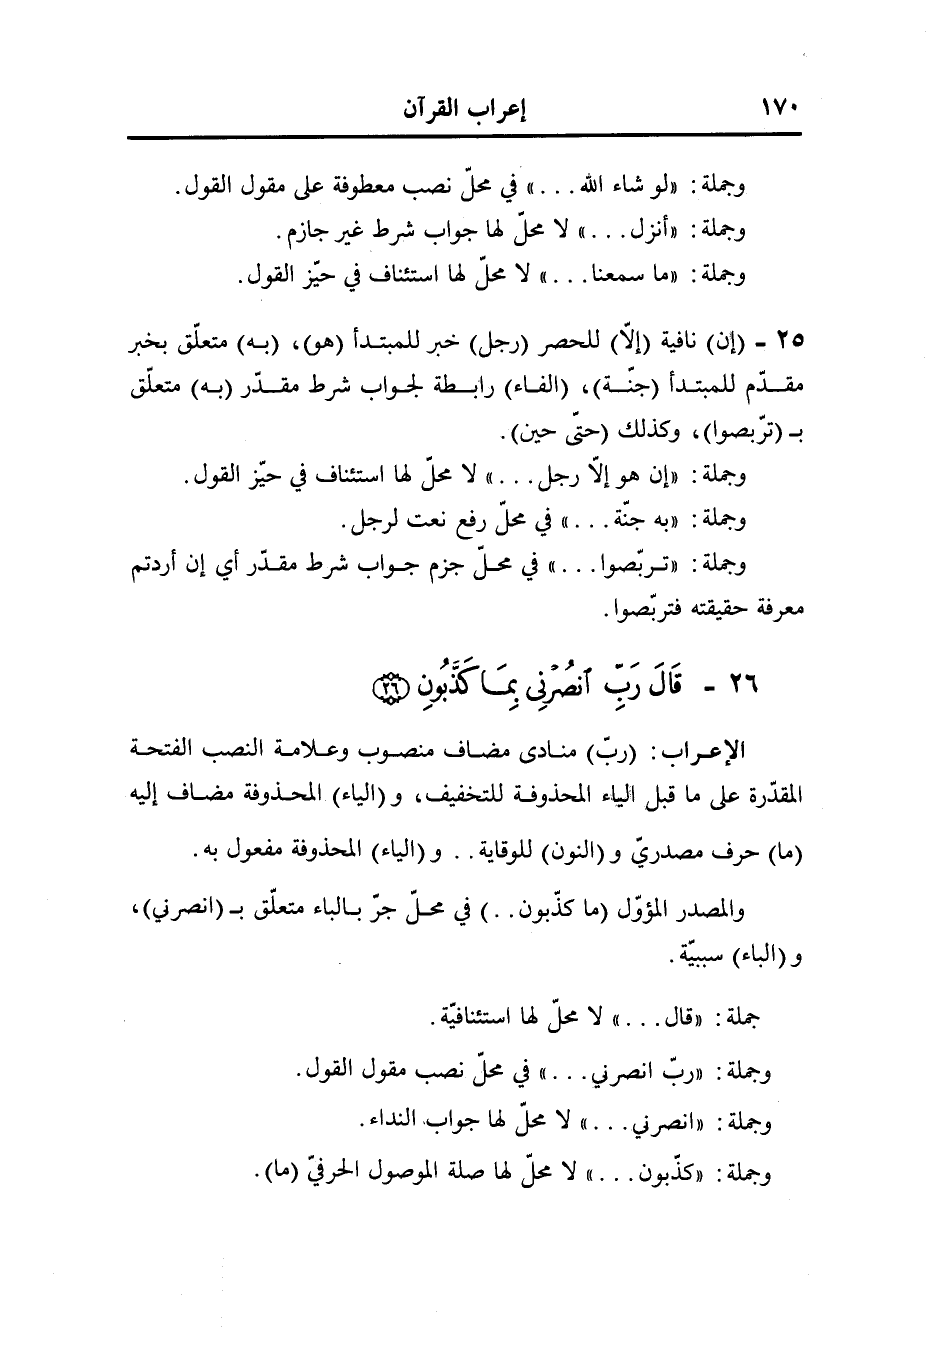 ١٧٠ إعراب القرآن
وجملة: «لو شاء الله. . .» في محلّ نصب معطوفة على مقول القول.
وجملة: «أنزل. . .» لا محلّ لها جواب شرط غير جازم.
وجملة: «ما سمعنا. . .» لا محلّ لها استئناف في حيّز القول.
٢٥ - (إن) نافية (إلّا) للحصر (رجل) خبر للمبتدأ (هو)، (به) متعلّق بخبر
مقدّم للمبتدأ (جنّة)، (الفاء) رابطة لجواب شرط مقدّر (به) متعلّق
بـ (تربّصوا)، وكذلك (حتّى حين).
وجملة: «إن هو إلّا رجل. . .» لا محلّ لها استئناف في حيّز القول.
وجملة: «به جنّة. . .» في محلّ رفع نعت لرجل.
وجملة: «تربّصوا. . .» في محلّ جزم جواب شرط مقدّر أي إن أردتم
معرفة حقيقته فتربّصوا.
٢٦ - قَالَ رَبِّ ٱنصُرْنِي بِمَا كَذَّبُونِ ٢٦
الإعراب: (ربّ) منادى مضاف منصوب وعلامة النصب الفتحة
المقدّرة على ما قبل الياء المحذوفة للتخفيف، و (الياء) المحذوفة مضاف إليه
(ما) حرف مصدريّ و (النون) للوقاية. . و (الياء) المحذوفة مفعول به.
والمصدر المؤوّل (ما كذّبون. .) في محلّ جرّ بالباء متعلّق بـ (انصرني)،
و (الباء) سببيّة.
جملة: «قال. . .» لا محلّ لها استئنافيّة.
وجملة: «ربّ انصرني. . .» في محلّ نصب مقول القول.
وجملة: «انصرني. . .» لا محلّ لها جواب النداء.
وجملة: «كذّبون. . .» لا محلّ لها صلة الموصول الحرفيّ (ما).